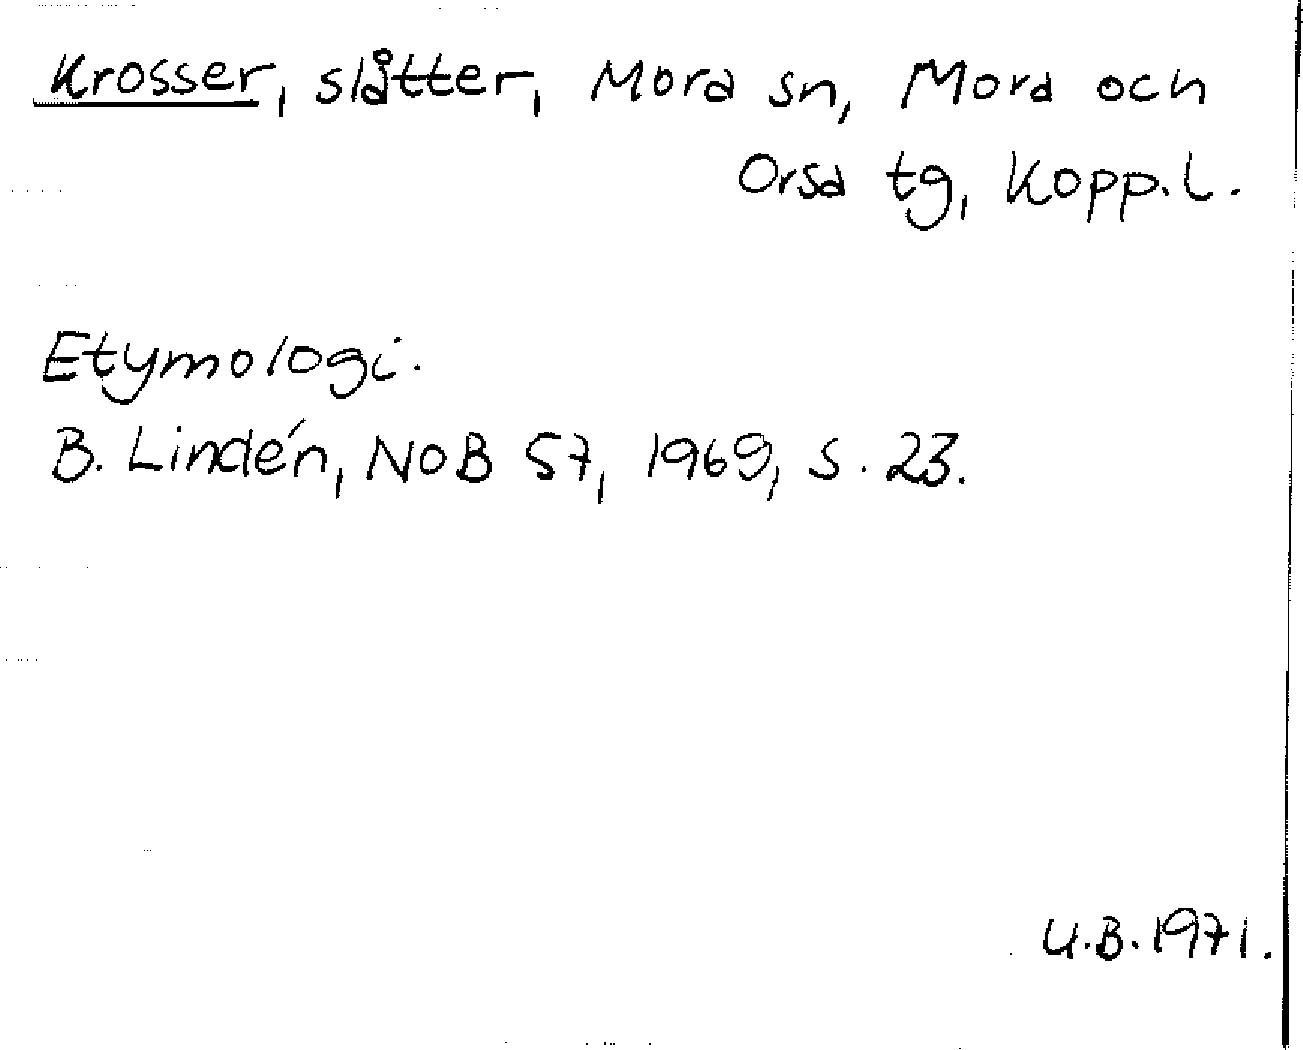 Krosser, slåtter, Mora sn, Mora och
Orsa tg, Kopp.l.
Etymologi.
B. Lindén, NoB 57, 1969, s. 23.
U.B. 1971.